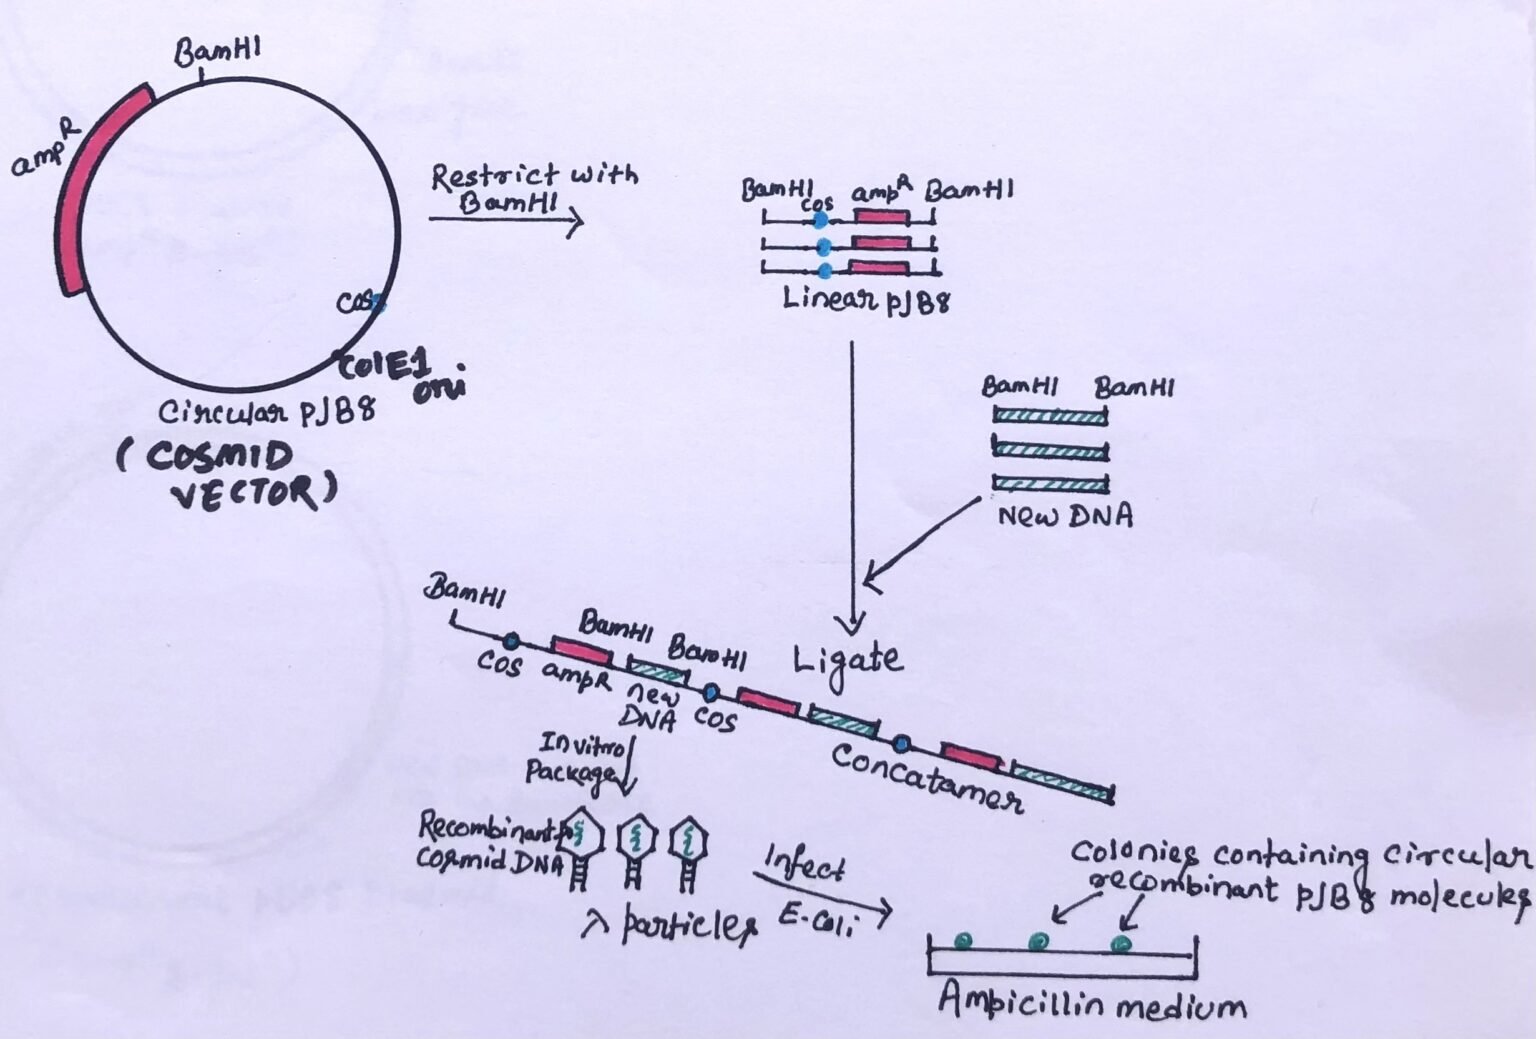 BamHI
amp R
cos
ColE1
ori
Circular PJB8
(COSMID
VECTOR)
Restrict with
BamHI
BamHI
cos
amp R
BamHI
Linear pJB8
BamHI BamHI
New DNA
Ligate
BamHI
BamHI
BamHI
cos
ampR
new
DNA
cos
Concatamer
Invitro
Package
Recombinant
Cosmid DNA
λ particles
Infect
E-Coli
Colonies containing circular
recombinant pJB8 molecules
Ampicillin medium